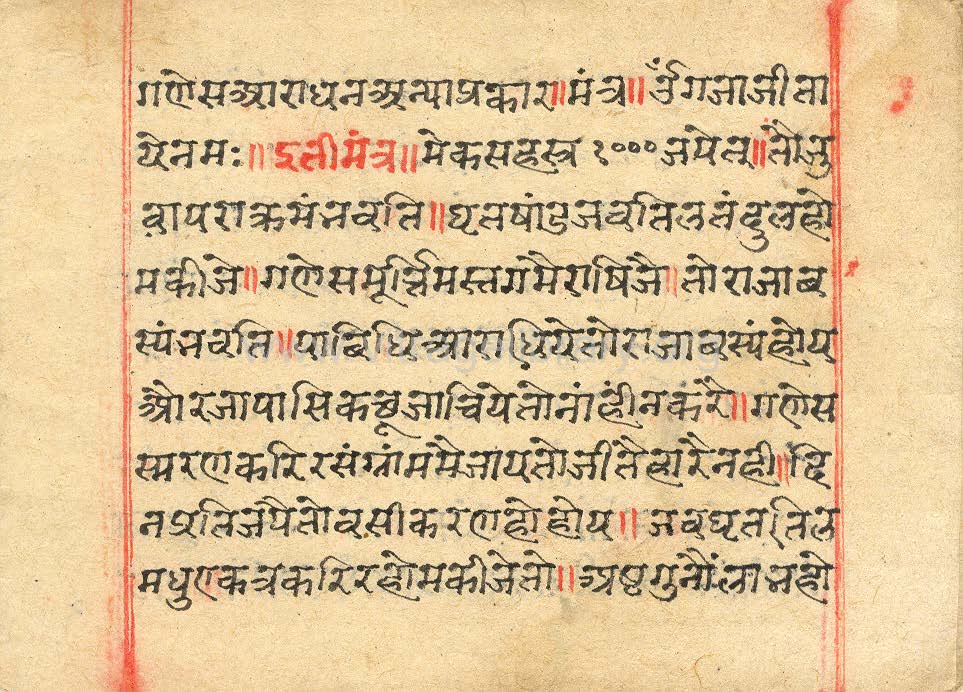 गणेसआराधनअन्याप्रकार॥मंत्र॥ ॐगजाजीता
येनमः॥ इतीमंत्र॥मेकसहस्त्र १००० जपेत्॥तौजु
वापराक्रमंभवति॥घृतषांडजवतिलतंदुलहो
मकीजे॥गणेसमूर्त्तिमस्तगमैराषिजै॥तोराजाव
स्यंभवति॥याविधिआराधियेतोराजावस्यंहोय
औरजापासिकछूजाचियेतोनांहींनकंरै॥गणेस
स्मरणकरिरसंग्रांममैजायतोजीतैहारैनही॥दि
नप्रतिजपैतोवसीकरणहोहोय॥ जवघृततिल
मधुएकत्रकरिरहोमकीजेतो॥अष्टगुनौंलाभहो